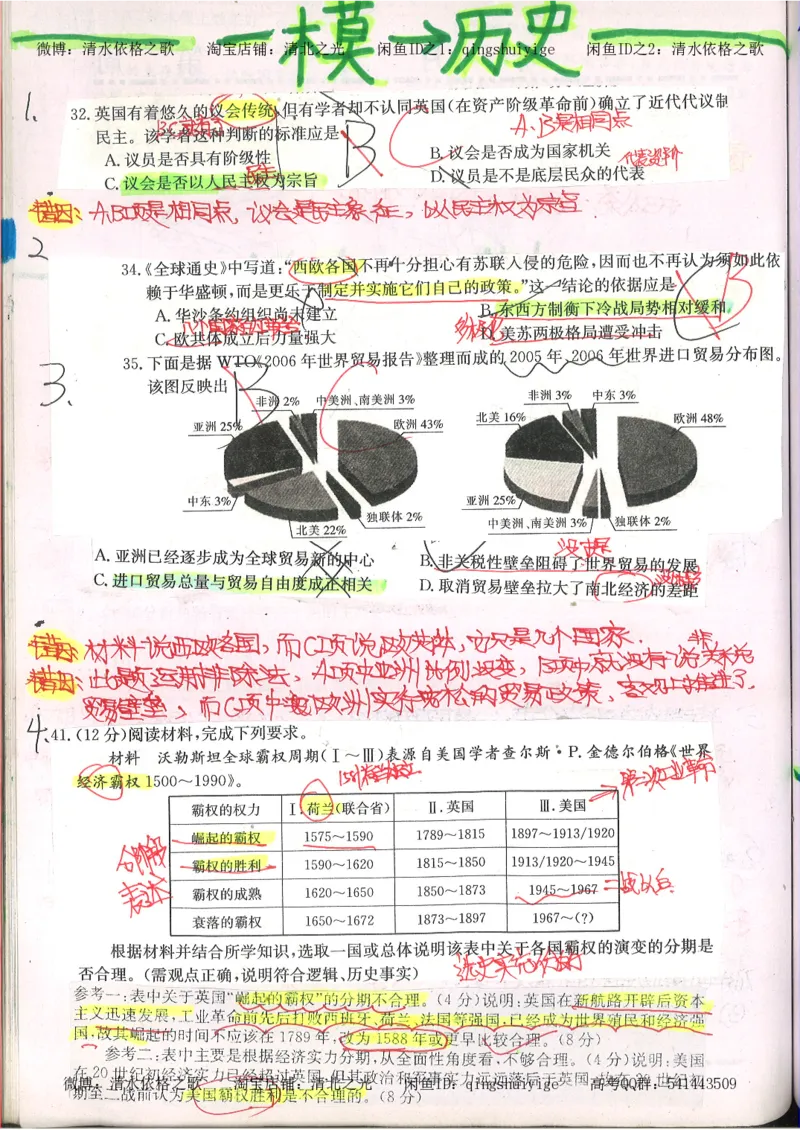 一模→历史
微博：清水依格之歌 淘宝店铺：清北之光 闲鱼ID之1：qingshuiyige 闲鱼ID之2：清水依格之歌
1.
32.英国有着悠久的议会传统,但有学者却不认同英国(在资产阶级革命前)确立了近代代议制
民主。该学者这种判断的标准应是
B
C
A、B是相同点
A.议员是否具有阶级性
B.议会是否成为国家机关
代表资产阶
C.议会是否以人民主权为宗旨
D.议员是不是底层民众的代表
错因：A、B项是相同点，议会是民主象征，以人民主权为宗旨
2
34.《全球通史》中写道:“西欧各国不再十分担心有苏联入侵的危险,因而也不再认为须如此依
赖于华盛顿,而是更乐于制定并实施它们自己的政策。”这一结论的依据应是
B
A.华沙条约组织尚未建立
B.东西方制衡下冷战局势相对缓和
C.欧共体成立后力量强大
D.美苏两极格局遭受冲击
3.
35.下面是据 WTO《2006年世界贸易报告》整理而成的2005年、2006年世界进口贸易分布图。
该图反映出
B
C
非洲 2% 中美洲、南美洲 3%
亚洲 25%
欧洲 43%
中东 3%
独联体 2%
北美 22%
非洲 3% 中东 3%
北美 16%
欧洲 48%
亚洲 25%
中美洲、南美洲 3%
独联体 2%
A.亚洲已经逐步成为全球贸易新的中心
B.非关税性壁垒阻碍了世界贸易的发展
C.进口贸易总量与贸易自由度成正相关
D.取消贸易壁垒拉大了南北经济的差距
错因：材料说西欧各国，而C项说欧共体，它只是几个国家.
错因：此题运用排除法，A项中亚洲比例没变，B项中就没有说非关税
贸易壁垒，而C项中
4.
41.(12分)阅读材料,完成下列要求。
材料 沃勒斯坦全球霸权周期(Ⅰ～Ⅲ)表源自美国学者查尔斯·P.金德尔伯格《世界
经济霸权1500～1990》。
第二次工业革命
霸权的权力 Ⅰ.荷兰(联合省) Ⅱ.英国 Ⅲ.美国
崛起的霸权 1575～1590 1789～1815 1897～1913/1920
霸权的胜利 1590～1620 1815～1850 1913/1920～1945
霸权的成熟 1620～1650 1850～1873 1945～1967
衰落的霸权 1650～1672 1873～1897 1967～(?)
分阶段
表达
二战以后
根据材料并结合所学知识,选取一国或总体说明该表中关于各国霸权的演变的分期是
否合理。(需观点正确,说明符合逻辑、历史事实)
参考一:表中关于英国“崛起的霸权”的分期不合理。(4分)说明:英国在新航路开辟后资本
主义迅速发展,工业革命前先后打败西班牙、荷兰、法国等强国,已经成为世界殖民和经济强
国,故其崛起的时间不应该在1789年,改为1588年或更早比较合理。(8分)
参考二:表中主要是根据经济实力分期,从全面性角度看,不够合理。(4分)说明:美国
在20世纪初经济实力已经超过英国,但其政治和军事实力远远落后于英国,故在20世纪初
微博：清水依格之歌 淘宝店铺：清北之光 闲鱼ID：qingshuiyige 高考QQ群：641443509
期至二战前认为美国霸权胜利是不合理的。(8分)